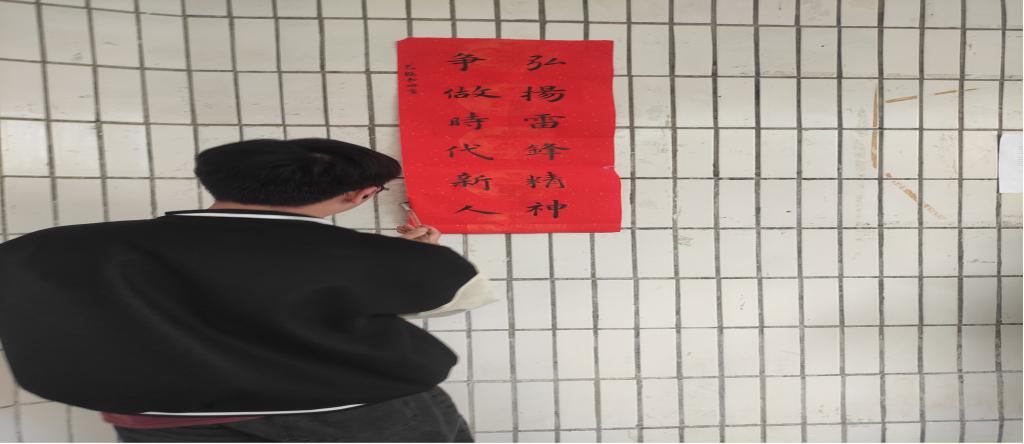 弘揚雷鋒精神
争做時代新人